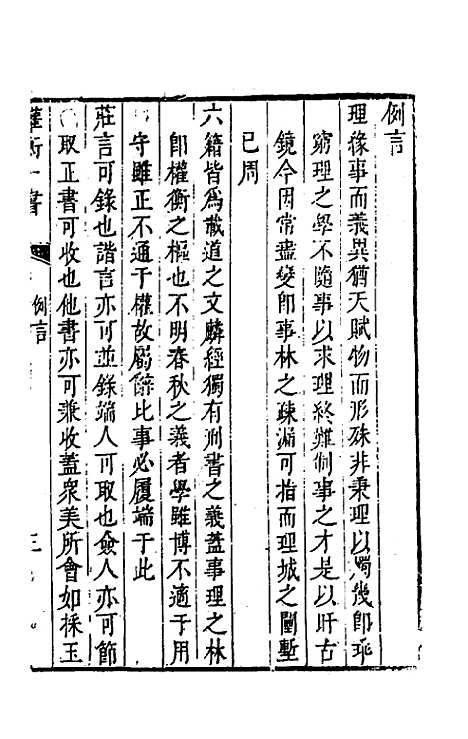 例言
理緣事而義異猶天賦物而形殊非秉理以燭幾卽乖
窮理之學不隨事以求理終難制事之才是以盱古
鏡今因常盡變卽事林之疎漏可指而理城之闉塹
已周
六籍皆為載道之文麟經獨有刑書之義蓋事理之林
卽權衡之樞也不明春秋之義者學雖博不適于用
守雖正不通于權故屬辭比事必履端于此
莊言可錄也諧言亦可並錄端人可取也僉人亦可節
取正書可收也他書亦可兼收蓋眾美所會如採玉
權衡一書
例言
三